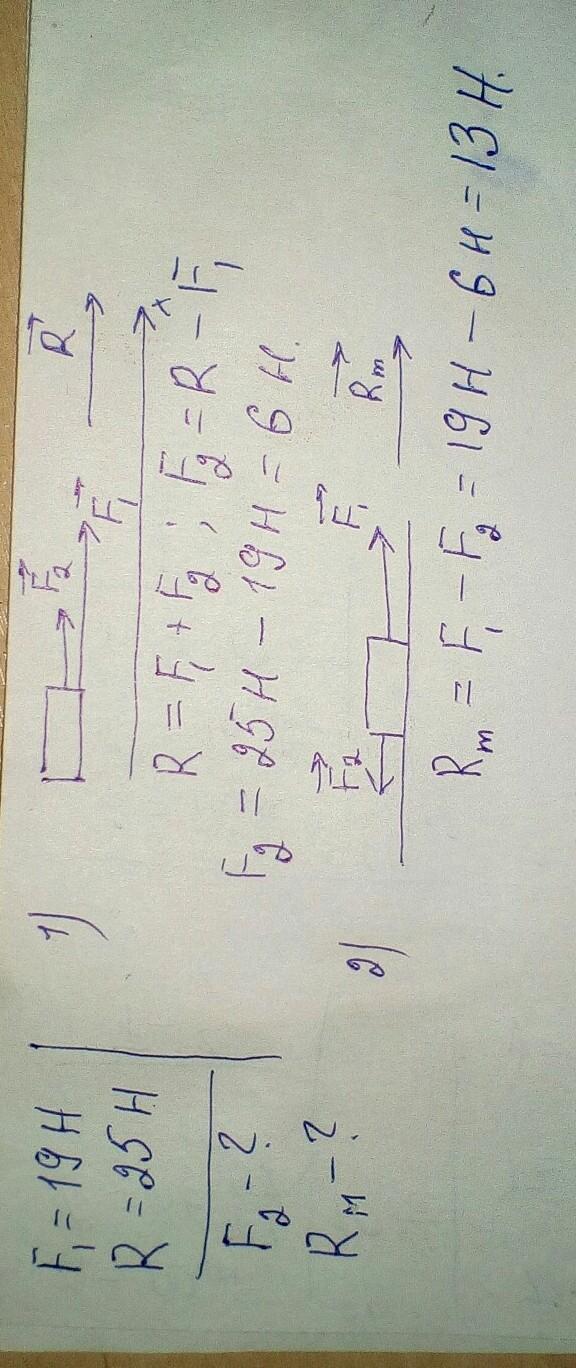 F₁ = 19 Н
R = 25 Н
F₂ - ?
Rм - ?
1)
F⃗₂
F⃗₁
R⃗
x
R = F₁ + F₂ ; F₂ = R - F₁
F₂ = 25 Н - 19 Н = 6 Н.
2)
F⃗₂
F⃗₁
R⃗m
Rm = F₁ - F₂ = 19 Н - 6 Н = 13 Н.